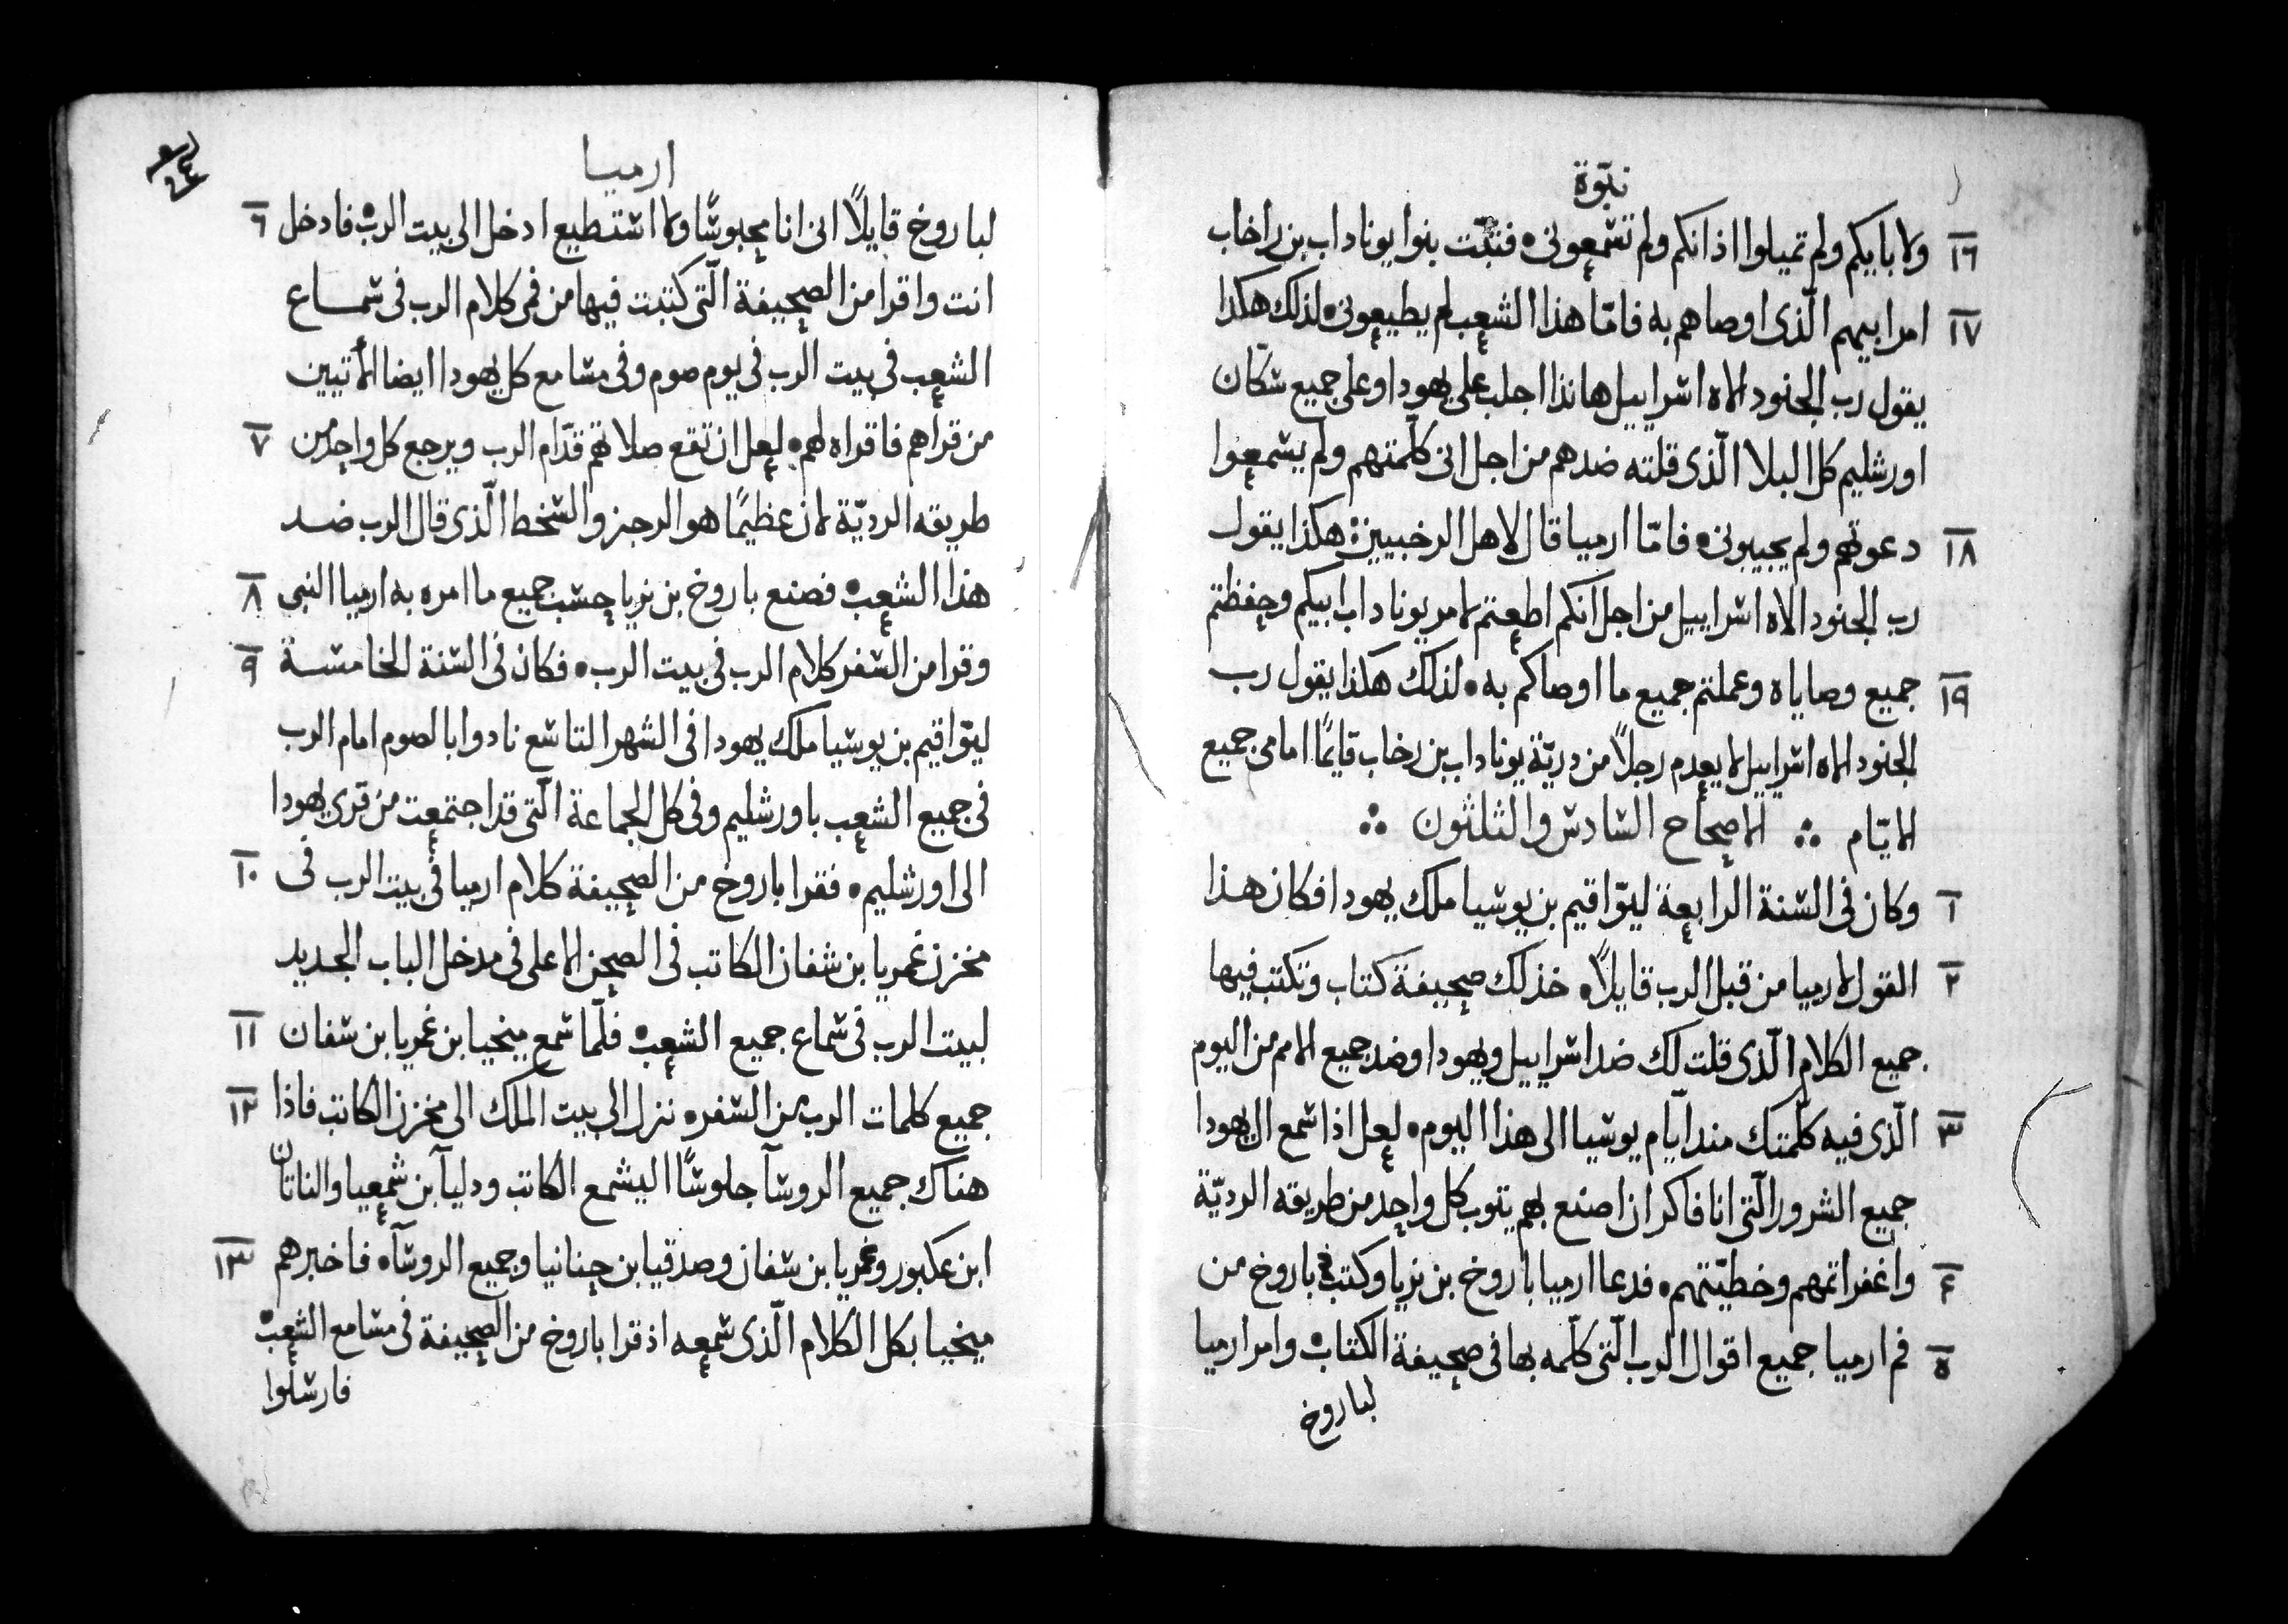 نبوّة
١٦ ولا بايكم ولم تميلوا اذانكم ولم تسمعونى٠ فثبّت بنوا يوناداب بن راخاب
١٧ امر ابيهم الّذى اوصاهم به فامّا هذا الشعب لم يطيعونى٠ لذلك هكذا
يقول رب الجنود الاه اسراييل هانذا اجلب على يهودا وعلى جميع سكّان
اورشليم كل البلا الّذى قلته ضدهم من اجل انى كلّمتهم ولم يسمعوا
١٨ دعوتهم ولم يجيبونى٠ فامّا ارميا قال لاهل الرخبيين هكذا يقول
رب الجنود الاه اسراييل من اجل انكم اطعتم لامر يوناداب ابيكم وحفظتم
١٩ جميع وصاياه وعملتم جميع ما اوصاكم به٠ لذلك هكذا يقول رب
الجنود الاه اسراييل لا يعدم رجلاً من دريّة يوناداب بن رخاب قايمًا امامى جميع
الايّام ∴ الاصحاح السادس والثلثون ∴
١ وكان فى السنة الرابعة ليوّاقيم بن يوشيا ملك يهودا فكان هذا
٢ القول لارميا من قبل الرب قايلاً٠ خذ لك صحيفة كتاب وتكتب فيها
جميع الكلام الّذى قلت لك ضد اسراييل ويهودا وضد جميع الامم من اليوم
٣ الّذى فيه كلّمتك مند ايّام يوشيا الى هذا اليوم٠ لعل اذا سمع ال يهودا
جميع الشرور الّتى انا فاكر ان اصنع بهم يتوب كل واحد من طريقه الرديّة
٤ واغفر اثمهم وخطيّتهم٠ فدعا ارميا باروخ بن نريا وكتب باروخ من
٥ فم ارميا جميع اقوال الرب الّتى كلّمه بها فى صحيفة الكتاب٠ وامر ارميا
لباروخ
ارميا
لباروخ قايلاً انى انا محبوسًا ولا استطيع ادخل الى بيت الرب٠ فادخل ٦
انت واقرا من الصحيفة الّتى كتبت فيها من فمى كلام الرب فى سماع
الشعب فى بيت الرب فى يوم صوم وفى مسامع كل يهودا ايضا الأتيين
من قراهم فاقراه لهم٠ لعل ان تقع صلاتهم قدّام الرب ويرجع كل واحد من ٧
طريقه الرديّة لان عظيمًا هو الرجز والسخط الّذى قال الرب ضد
هذا الشعب٠ فصنع باروخ بن نريا حسب جميع ما امره به ارميا النبى ٨
وقرا من السفر كلام الرب فى بيت الرب٠ فكان فى السنة الخامسة ٩
ليوّاقيم بن يوشيا ملك يهودا فى الشهر التاسع نادوا بالصوم امام الرب
فى جميع الشعب باورشليم وفى كل الجماعة الّتى قد اجتمعت من قرى يهودا
الى اورشليم٠ فقرا باروخ من الصحيفة كلام ارميا فى بيت الرب فى ١٠
مخزن غمريا بن شفان الكاتب فى الصحن الاعلى فى مدخل الباب الجديد
لبيت الرب فى سماع جميع الشعب٠ فلّما سمع ميخيا بن غمريا بن شفان ١١
جميع كلمات الرب من السفر٠ نزل الى بيت الملك الى مخزن الكاتب فاذا ١٢
هناك جميع الروسآ جلوسًا اليشمع الكاتب ودليآ بن شمعيا والناتان
ابن عكبور وغمريا بن شفان وصدقيا بن حنانيا وجميع الروسآ٠ فاخبرهم ١٣
ميخيا بكل الكلام الّذى سمعه اذ قرا باروخ من الصحيفة فى مسامع الشعب٠
فارسلوا